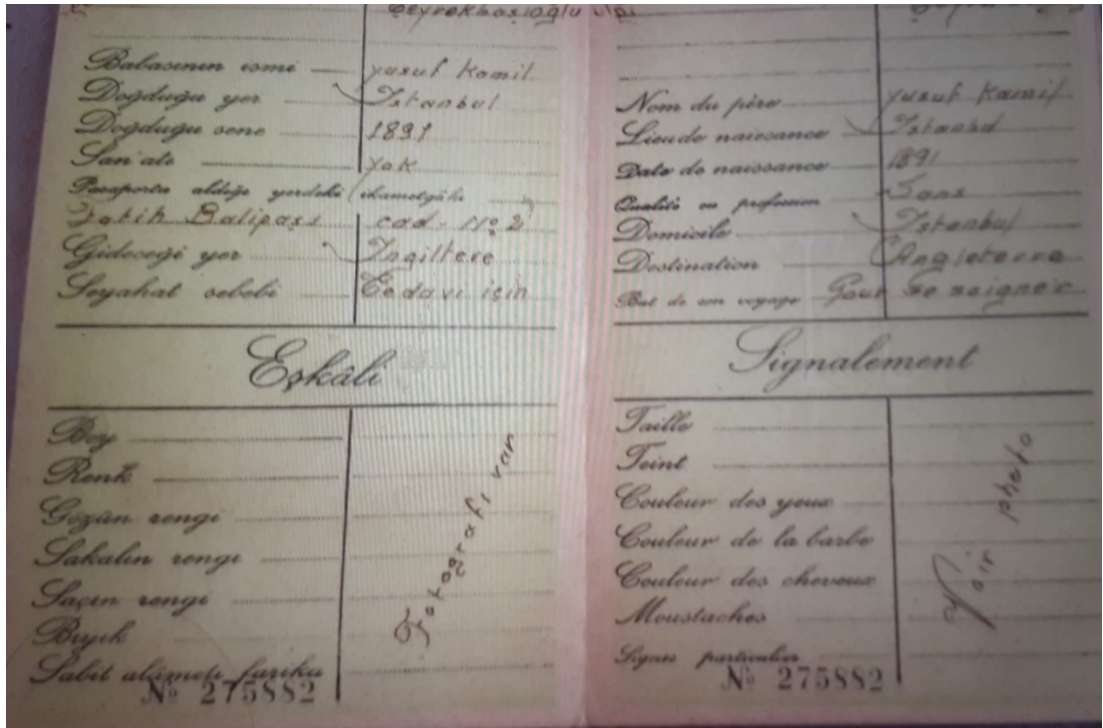 Çeyrekbaşıoğlu
Babasının ismi yusuf Kamil
Doğduğu yer İstanbul
Doğduğu sene 1891
San'atı yok
Pasaportu aldığı yerdeki ikametgâhı
Fatih Balipaşa cad. No 2
Gideceği yer İngiltere
Seyahat sebebi Tedavi için
Eşkâli
Boy
Renk
Gözün rengi
Sakalın rengi
Saçın rengi
Bıyık
Sabit alâmeti farika
Fotoğrafı var
No 275882
Nom du père yusuf Kamil
Lieu de naissance Istanbul
Date de naissance 1891
Qualité ou profession Sans
Domicile Istanbul
Destination Angleterre
But de son voyage Pour se soigner
Signalement
Taille
Teint
Couleur des yeux
Couleur de la barbe
Couleur des cheveux
Moustaches
Signes particulier
Voir photo
No 275882